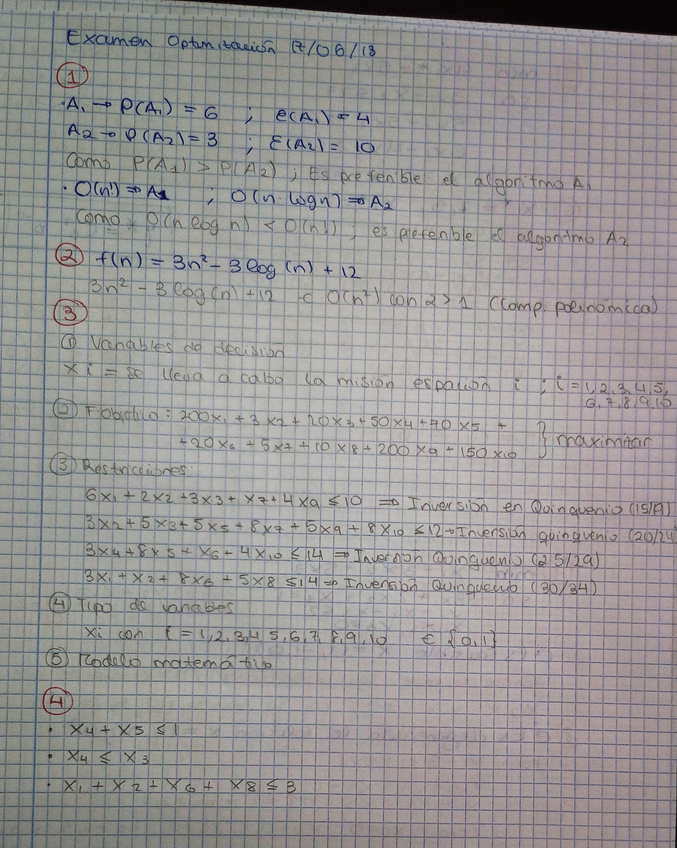 Examen Optimización 17/06/13
①
· A₁ → P(A₁) = 6 ; e(A₁) = 4
A₂ → P(A₂) = 3 ; E(A₂) = 10
Como P(A₁) > P(A₂) ; Es preferible el algoritmo A₁
· O(n!) ⇒ A₁ ; O(n·logn) ⇒ A₂
Como O(n log n) < O(n!) ; es preferible el algoritmo A₂
② f(n) = 3n² - 3 log(n) + 12
3n² - 3 log(n) + 12 ⊂ O(n²) con α > 1 (Comp. polinómica)
③
① Variables de decisión
Xi = se lleva a cabo la misión espacial i ; i = 1,2,3,4,5,
6,7,8,9,10
② F.objetivo: 200x₁ + 3x₂ + 20x₃ + 50x₄ + 70x₅ +
+20x₆ + 5x₇ + 10x₈ + 200x₉ + 150x₁₀ } maximizar
③ Restricciones:
6x₁ + 2x₂ + 3x₃ + x₇ + 4x₉ ≤ 10 ⇒ Inversión en Quinquenio (15/19)
3x₂ + 5x₃ + 5x₅ + 8x₇ + 5x₉ + 8x₁₀ ≤ 12 → Inversión quinquenio (20/24)
3x₄ + 8x₅ + x₆ + 4x₁₀ ≤ 14 ⇒ Inversión Quinquenio (25/29)
3x₁ + x₂ + 8x₆ + 5x₈ ≤ 14 ⇒ Inversión Quinquenio (30/34)
④ Tipo de variables
Xi con i = 1,2,3,4,5,6,7,8,9,10 ∈ {0,1}
⑤ Modelo matemático
④
· X₄ + X₅ ≤ 1
· X₄ ≤ X₃
· X₁ + X₂ + X₆ + X₈ ≤ 3